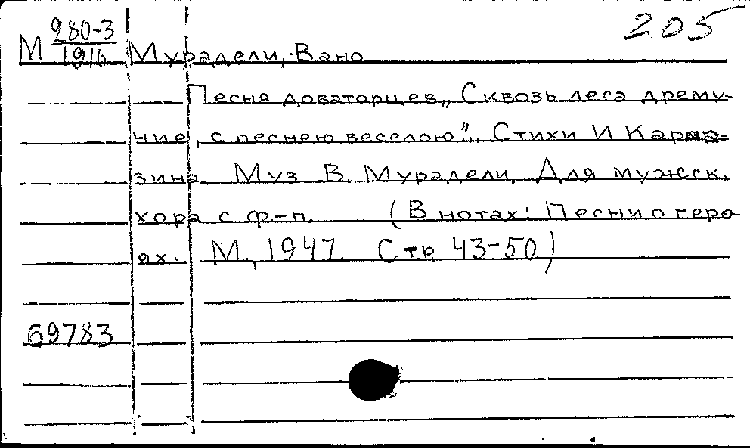 205
М 280-3/1916 Мурадели, Вано
Песня доваторцев „Сквозь леса дрему-
чие, с песнею веселою". Стихи И Карма-
зина Муз В. Мурадели. Для мужск.
хора с ф-п. (В нотах: Песни о геро-
ях. М., 1947. Стр 43-50)
69783